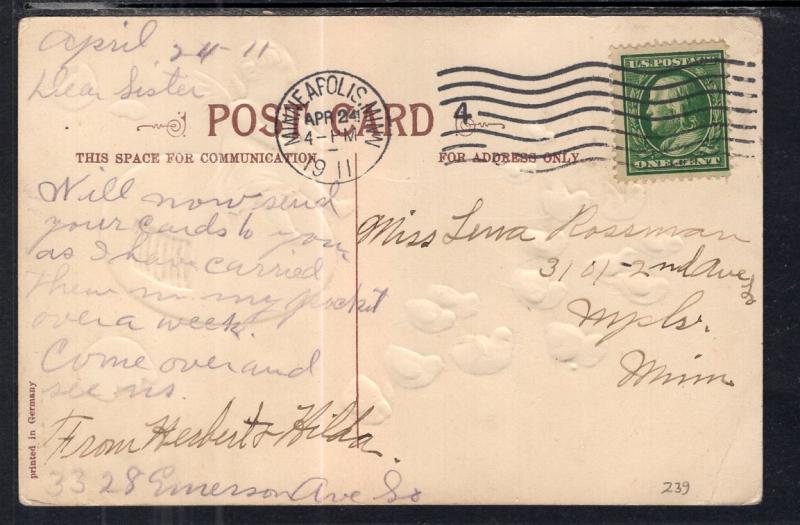 April 24-11
Dear Sister
POST CARD
THIS SPACE FOR COMMUNICATION.
FOR ADDRESS ONLY.
MINNEAPOLIS, MINN
APR 24
4-PM
1911
4
U.S. POSTAGE
ONE CENT
Will now send
your cards to you
as I have carried
them in my pocket
over a week.
Come over and
see us.
From Herbert & Hilda.
3328 Emerson Ave So
Miss Lena Rossman
3101-2nd Ave So
Mpls.
Minn
printed in Germany
239